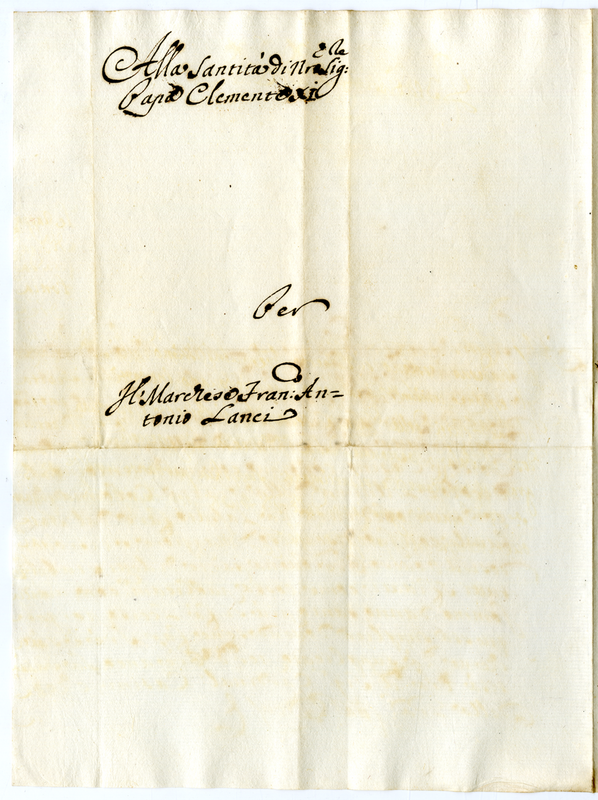 Alla Santità di Nro Sig:re
Papa Clemente XI
Per
Il Marchese Fran:co An=
tonio Lanci